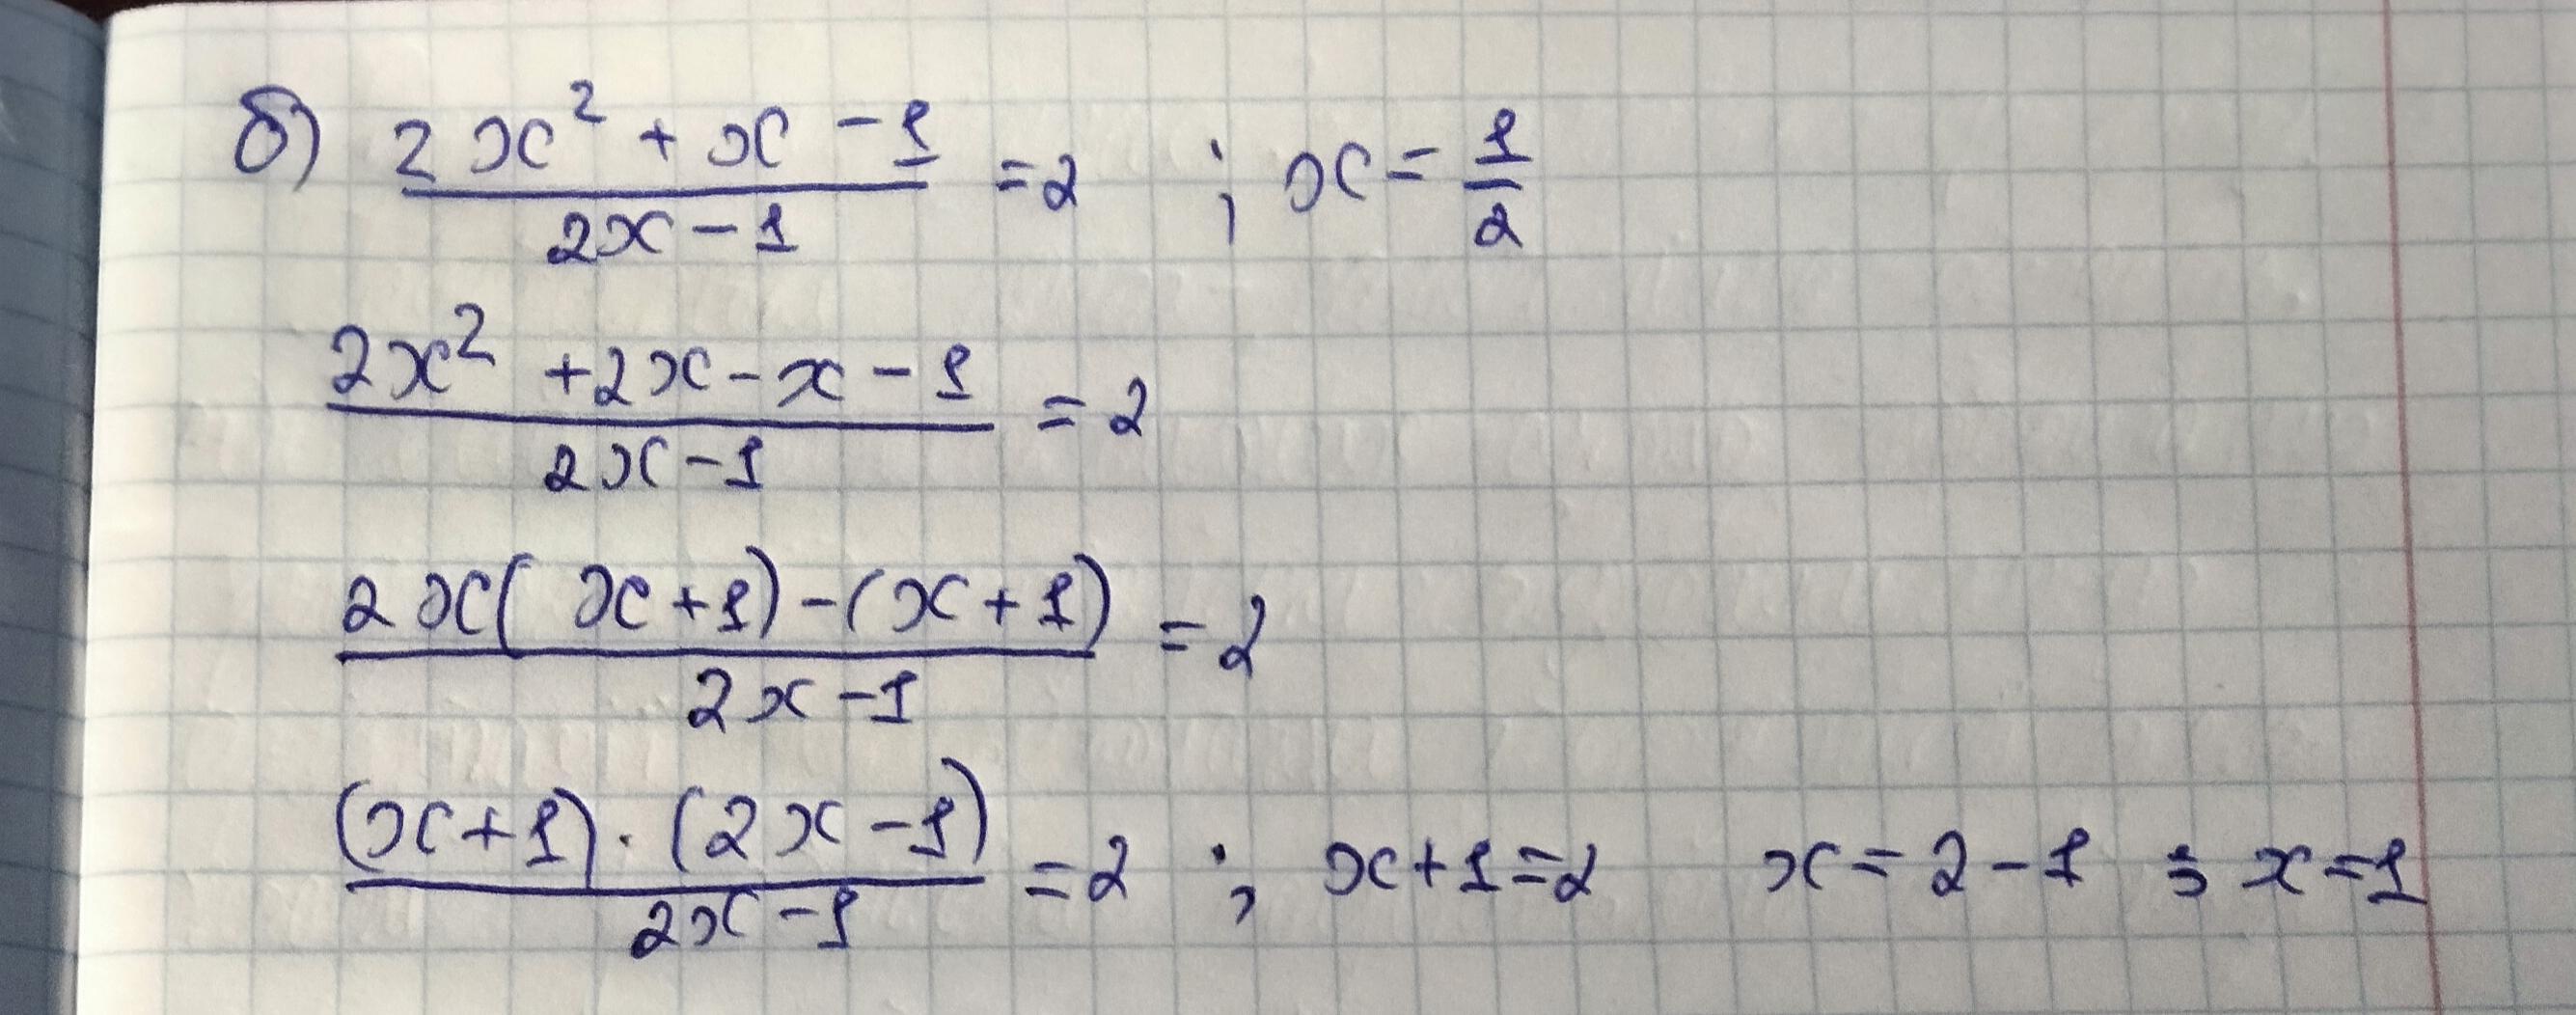 б) (2x² + x - 1)/(2x - 1) = 2 ; x = 1/2
(2x² + 2x - x - 1)/(2x - 1) = 2
(2x(x + 1) - (x + 1))/(2x - 1) = 2
((x + 1) · (2x - 1))/(2x - 1) = 2 ; x + 1 = 2 x = 2 - 1 ; x = 1